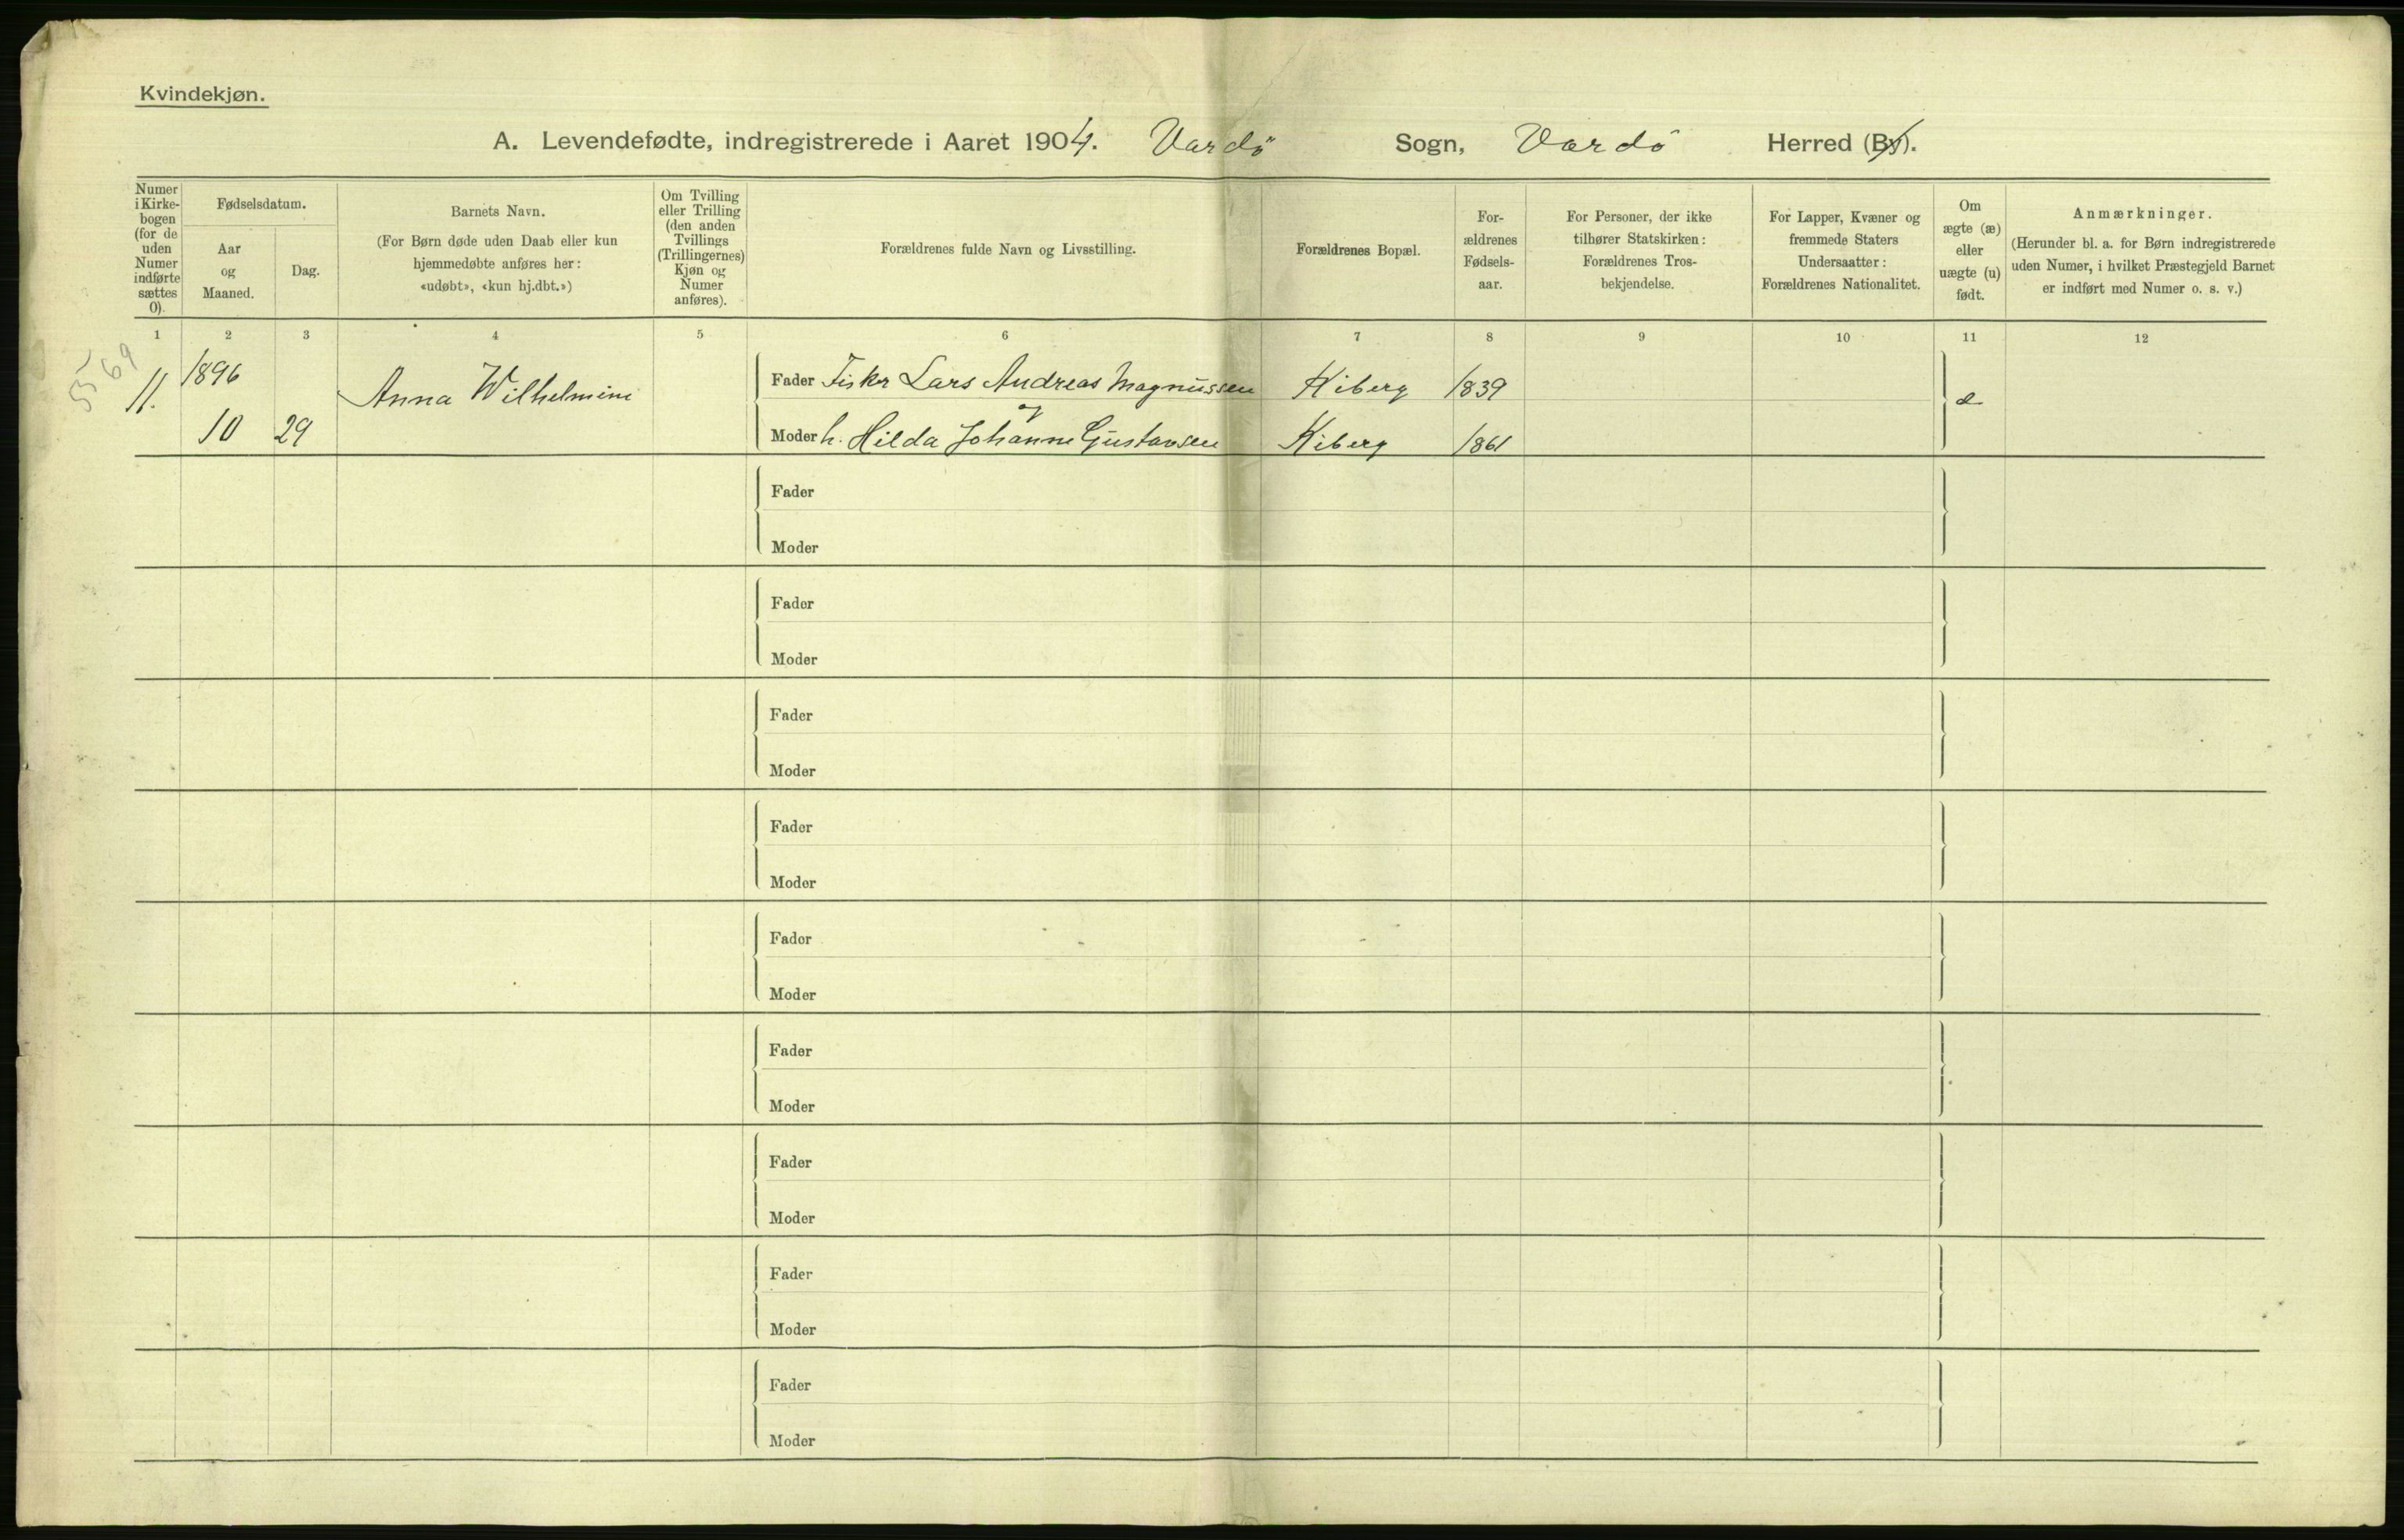 Kvindekjøn.
A. Levendefødte, indregistrerede i Aaret 1904. Vardö Sogn, Vardö Herred (By).
Numer i Kirke-bogen (for de uden Numer indførte sættes 0).
Fødselsdatum.
Aar og Maaned.
Dag.
Barnets Navn.
(For Børn døde uden Daab eller kun
hjemmedøbte anføres her:
«udøbt», «kun hj.dbt.»)
Om Tvilling
eller Trilling
(den anden
Tvillings
(Trillingernes)
Kjøn og
Numer
anføres).
Forældrenes fulde Navn og Livsstilling.
Forældrenes Bopæl.
For-
ældrenes
Fødsels-
aar.
For Personer, der ikke
tilhører Statskirken:
Forældrenes Tros-
bekjendelse.
For Lapper, Kvæner og
fremmede Staters
Undersaatter:
Forældrenes Nationalitet.
Om
ægte (æ)
eller
uægte (u)
født.
Anmærkninger.
(Herunder bl. a. for Børn indregistrerede
uden Numer, i hvilket Præstegjeld Barnet
er indført med Numer o. s. v.)
1 2 3 4 5 6 7 8 9 10 11 12
5569
11. 1896 Anna Wilhelmine Fader Fisker Lars Andreas Magnussen Kiberg 1839 æ
og
10 29 Moder h. Hilda Johanne Gustavsen Kiberg 1861
Fader
Moder
Fader
Moder
Fader
Moder
Fader
Moder
Fader
Moder
Fader
Moder
Fader
Moder
Fader
Moder
Fader
Moder